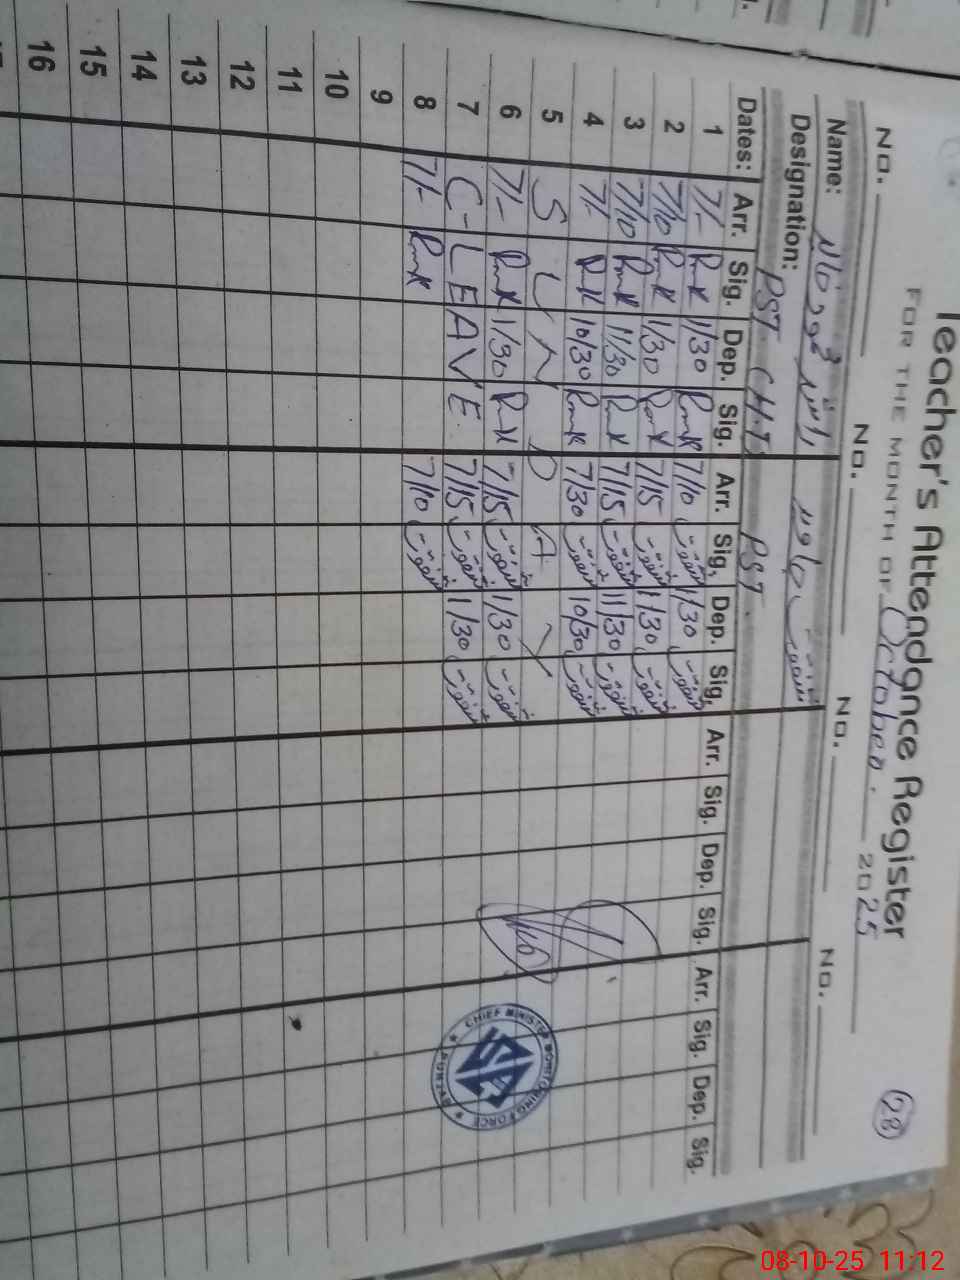 Teacher's Attendance Register
28
FOR THE MONTH OF October. 2025
No. No. No. No.
Name:
Designation: PST. PST.
Dates: Arr. Sig. Dep. Sig. Arr. Sig. Dep. Sig. Arr. Sig. Dep. Sig. Arr. Sig. Dep. Sig.
1 7/- 1/30 7/10 شفقت 1/30 شفقت
2 7/10 1/30 7/15 شفقت 1/30 شفقت
3 7/10 11/30 7/15 شفقت 11/30 شفقت
4 7/- 10/30 7/30 شفقت 10/30 شفقت
5 S U N D A Y
6 7/- 1/30 7/15 شفقت 1/30 شفقت
7 C-LEAVE 7/15 شفقت 1/30 شفقت
8 7/- 7/10 شفقت
9
10
11
12
13
14
15
16
CHIEF MINISTER MONITORING FORCE
PUNJAB
08-10-25 11:12